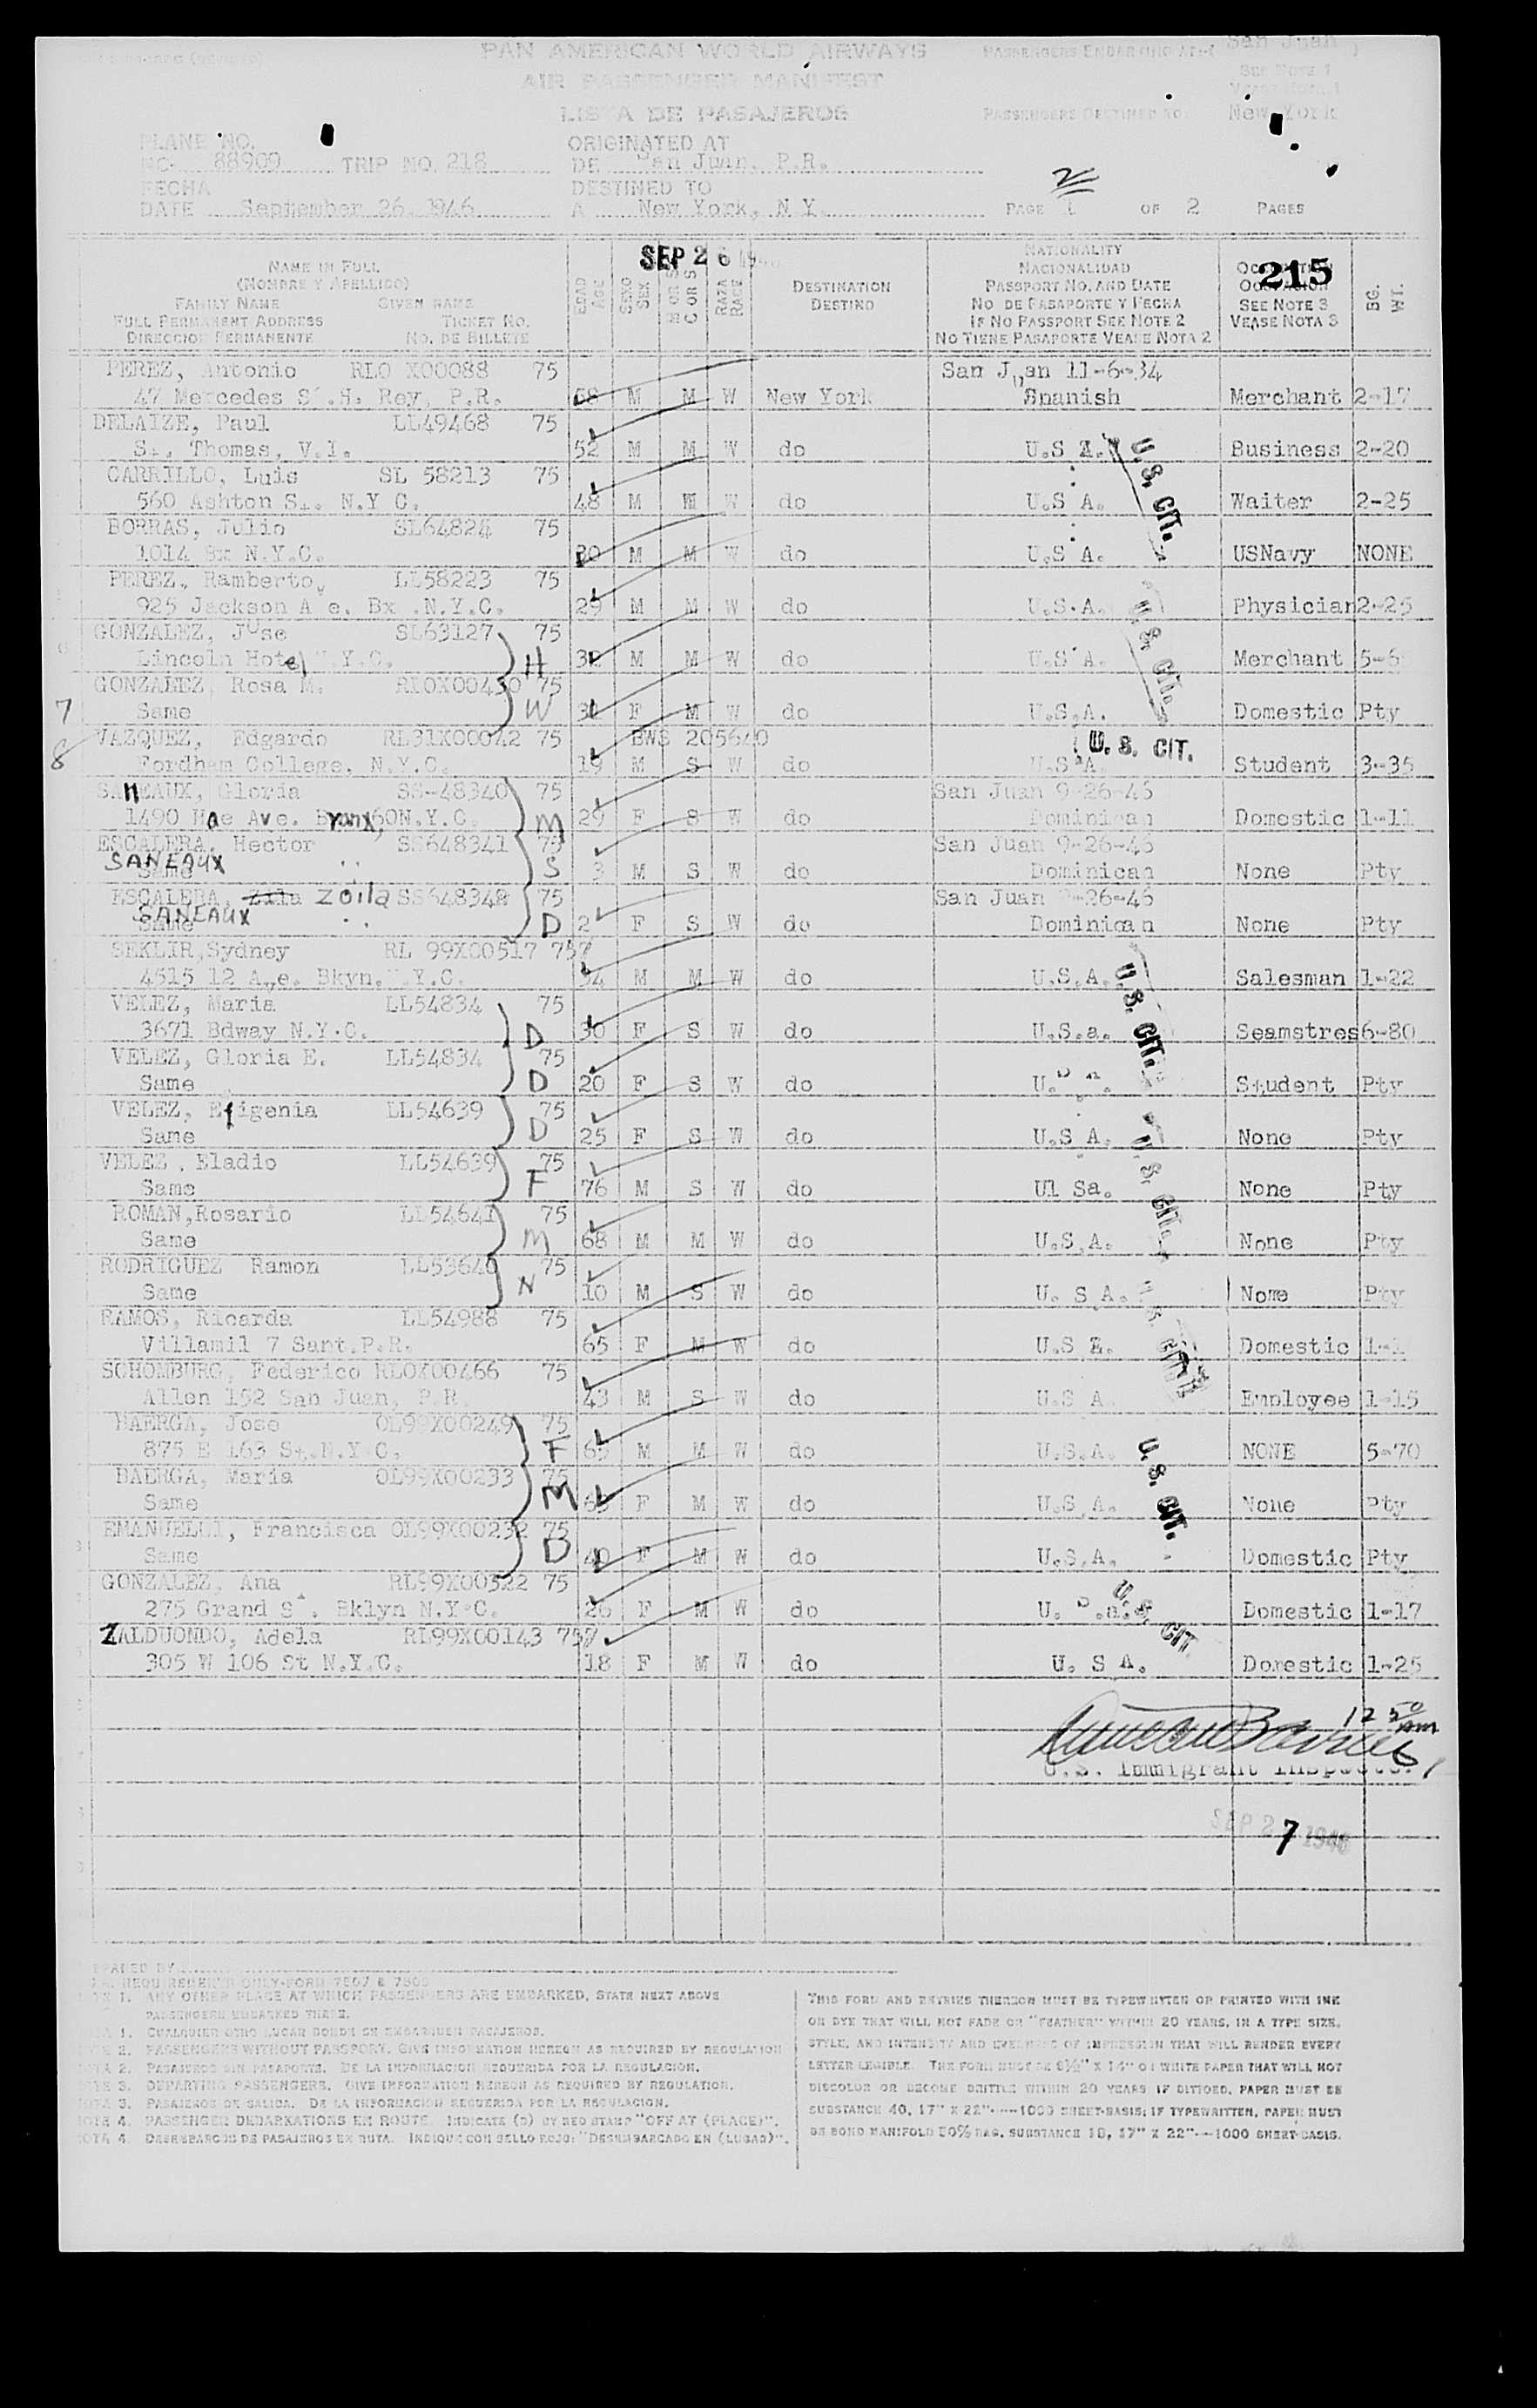 PAN AMERICAN WORLD AIRWAYS
AIR PASSENGER MANIFEST
LISTA DE PASAJEROS
PASSENGERS EMBARKING AT San Juan
SEE NOTE 1
VEASE NOTA 1
PASSENGERS DESTINED TO: New York
PLANE NO.
NO. 88909 TRIP NO. 218
ORIGINATED AT
DE San Juan, P.R.
FECHA
DATE September 26, 1946
DESTINED TO
A New York, N Y.
2
PAGE 1 OF 2 PAGES
SEP 26 1946
215
NAME IN FULL
(NOMBRE Y APELLIDO)
FAMILY NAME GIVEN NAME
FULL PERMANENT ADDRESS TICKET NO.
DIRECCION PERMANENTE NO. DE BILLETE
EDAD AGE
SEXO SEX
C OR S
RAZA RACE
DESTINATION
DESTINO
NATIONALITY
NACIONALIDAD
PASSPORT NO. AND DATE
NO DE PASAPORTE Y FECHA
IF NO PASSPORT SEE NOTE 2
NO TIENE PASAPORTE VEASE NOTA 2
OCCUPATION
OCUPACION
SEE NOTE 3
VEASE NOTA 3
BG. WT.
PEREZ, Antonio RLO X00088 75 San Juan 11-6-34
47 Mercedes S . H. Rey, P.R. 58 M M W New York Spanish Merchant 2-17
DELAIZE, Paul LL49468 75
St, Thomas, V.I. 52 M M W do U.S A. Business 2-20
U.S. CIT.
CARRILLO, Luis SL 58213 75
560 Ashton St. N.Y C. 48 M M W do U.S A. Waiter 2-25
BORRAS, Julio SL64824 75
1014 Bx N.Y.C. 30 M M W do U.S A. USNavy NONE
PEREZ, Ramberto, LL58223 75
925 Jackson A e. Bx .N.Y.C. 29 M M W do U.S.A. Physician 2-25
U.S. CIT.
GONZALEZ, Juse SL63127 75
Lincoln Hotel N.Y.C. H M M W do U.S A. Merchant 5-6
GONZALEZ Rosa M. RLOX00430 75
7 Same W F M W do U.S.A. Domestic Pty
VAZQUEZ, Edgardo RL31X00042 75 BWS 205640
8 Fordham College, N.Y.C. 19 M S W do U.S A. U.S. CIT. Student 3-35
SANEAUX, Gloria SS-48340 75 San Juan 9-26-46
1490 Hoe Ave. Bronx, 60N.Y.C. M 29 F S W do Dominican Domestic 1-11
ESCALERA, Hector SS648341 75 San Juan 9-26-46
SANEAUX
Same S 3 M S W do Dominican None Pty
ESCALERA, Zila Zoila SS648342 75 San Juan 9-26-46
SANEAUX
Same D 2 F S W do Dominican None Pty
SEKLIR, Sydney RL 99X00517 75
4515 12 Ave. Bkyn. N.Y.C. 34 M M W do U.S.A. Salesman 1-22
U.S. CIT.
VELEZ, Maria LL54834 75
3671 Bdway N.Y.C. D 30 F S W do U.S.a. Seamstres 6-80
VELEZ, Gloria E. LL54834 75
Same D 20 F S W do U.S A. Student Pty
VELEZ, Efigenia LL54639 75
Same D 25 F S W do U.S A. None Pty
U.S. CIT.
VELEZ , Eladio LL54639 75
Same F 76 M S W do Ul Sa. None Pty
ROMAN, Rosario LL54641 75
Same M 68 M M W do U.S.A. None Pty
RODRIGUEZ Ramon LL53640 75
Same N 10 M S W do U. S A. None Pty
RAMOS, Ricarda LL54988 75
Villamil 7 Sant.P.R. 65 F M W do U.S A. Domestic 1-1
SCHOMBURG, Federico RLOX00466 75
Allen 152 San Juan, P.R. 43 M S W do U.S A. Employee 1-15
BAERGA, Jose OL99X00249 75
875 E 163 St.N.Y C. F M M W do U.S.A. NONE 5-70
U.S. CIT.
BAERGA, Maria OL99X00233 75
Same M F M W do U.S.A. None Pty
EMANUELLI, Francisca OL99X00232 75
Same D 40 F M W do U.S.A. Domestic Pty
GONZALEZ, Ana RL99X00322 75
275 Grand St. Bklyn N.Y.C. 26 F M W do U. S.a. Domestic 1-17
U.S. CIT
ZALDUONDO, Adela RL99X00143 75
305 W 106 St N.Y.C. 18 F M W do U. S A. Domestic 1-25
12 50 AM
U.S. Immigrant Inspector
SEP 27 1946
PREPARED BY
REQUIREMENTS ONLY-FORM 7507 & 7509
NOTE 1. ANY OTHER PLACE AT WHICH PASSENGERS ARE EMBARKED, STATE NEXT ABOVE
PASSENGERS EMBARKED THERE.
NOTA 1. CUALQUIER OTRO LUGAR DONDE SE EMBARQUEN PASAJEROS.
NOTE 2. PASSENGERS WITHOUT PASSPORT. GIVE INFORMATION HEREON AS REQUIRED BY REGULATION
NOTA 2. PASAJEROS SIN PASAPORTE. DE LA INFORMACION REQUERIDA POR LA REGULACION.
NOTE 3. DEPARTING PASSENGERS. GIVE INFORMATION HEREON AS REQUIRED BY REGULATION.
NOTA 3. PASAJEROS DE SALIDA. DE LA INFORMACION REQUERIDA POR LA REGULACION.
NOTE 4. PASSENGER DEBARKATIONS EN ROUTE. INDICATE (D) BY RED STAMP "OFF AT (PLACE)".
NOTA 4. DESEMBARCOS DE PASAJEROS EN RUTA. INDIQUE CON SELLO ROJO: "DESEMBARCADO EN (LUGAR)".
THIS FORM AND ENTRIES THEREON MUST BE TYPEWRITTEN OR PRINTED WITH INK
OR DYE THAT WILL NOT FADE OR "FEATHER" WITHIN 20 YEARS, IN A TYPE SIZE,
STYLE, AND INTENSITY AND EVENNESS OF IMPRESSION THAT WILL RENDER EVERY
LETTER LEGIBLE. THE FORM MUST BE 8½" X 14" ON WHITE PAPER THAT WILL NOT
DISCOLOR OR BECOME BRITTLE WITHIN 20 YEARS IF DITTOED, PAPER MUST BE
SUBSTANCE 40, 17" X 22"----1000 SHEET-BASIS; IF TYPEWRITTEN, PAPER MUST
BE BOND MANIFOLD 50% RAG, SUBSTANCE 18, 17" X 22"---1000 SHEET-BASIS.